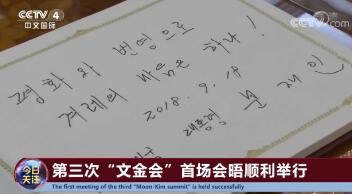 CCTV 4
中文国际
CCTV.com
평화와 번영으로
겨레의 마음은 하나!
2018. 9. 18
대통령 문재인
今日关注
第三次“文金会”首场会晤顺利举行
The first meeting of the third "Moon-Kim summit" is held successfully